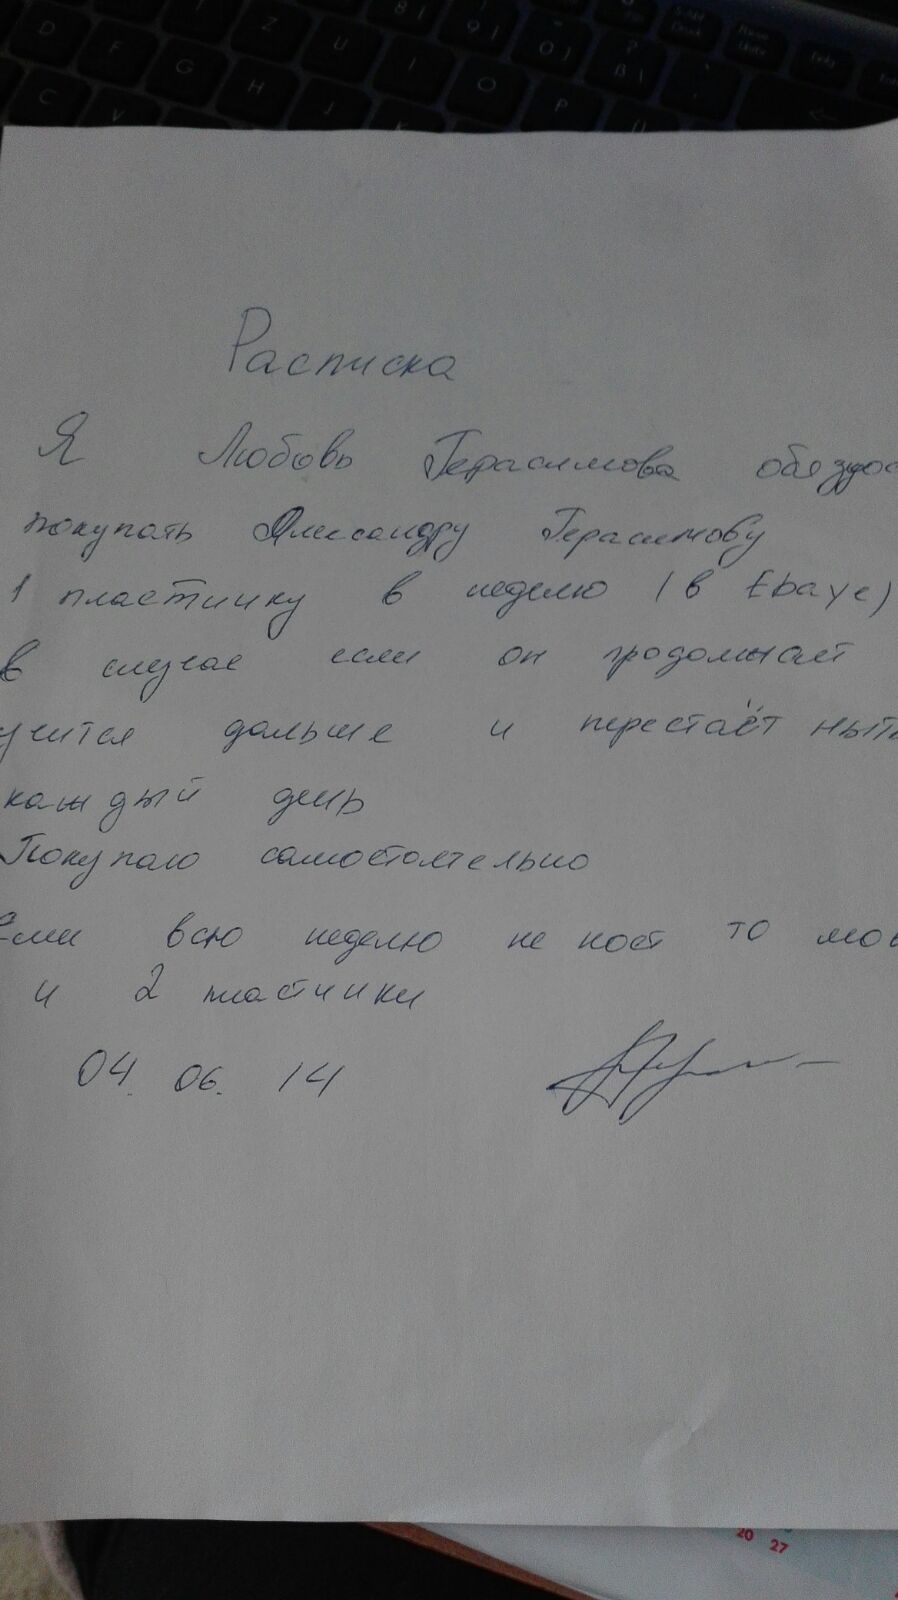 Расписка
Я Любовь Герасимова обязуюс
покупать Александру Герасимову
1 пластинку в неделю (в Ebaye)
в случае если он продолжает
учится дальше и перестаёт ныть
каждый день
Покупаю самостоятельно
Если всю неделю не ноет то мож
и 2 пластинки
04. 06. 14
20
27